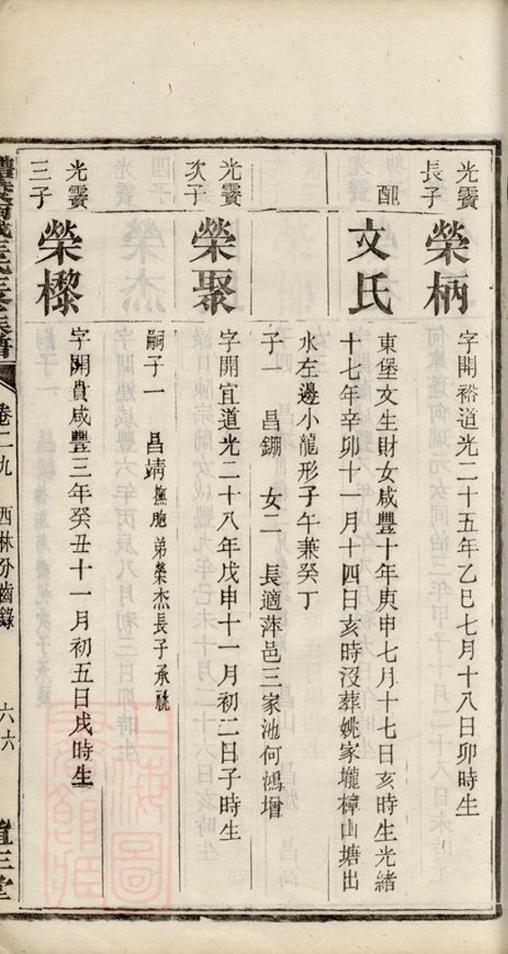 光霙長子
榮柄
字開裕道光二十五年乙巳七月十八日卯時生
配
文氏
東堡文生財女咸豐十年庚申七月十七日亥時生光緒
十七年辛卯十一月十四日亥時沒葬姚家壠樟山塘出
水左邊小龍形子午兼癸丁
子一 昌錋 女二 長適萍邑三家池何鴻增
光霙次子
榮聚
字開宜道光二十八年戊申十一月初二日子時生
嗣子一 昌靖 撫胞弟榮杰長子承祧
光霙三子
榮檪
字開貴咸豐三年癸丑十一月初五日戌時生
王氏三修族譜
卷二九 西林分齒錄
六六
三堂
上海圖